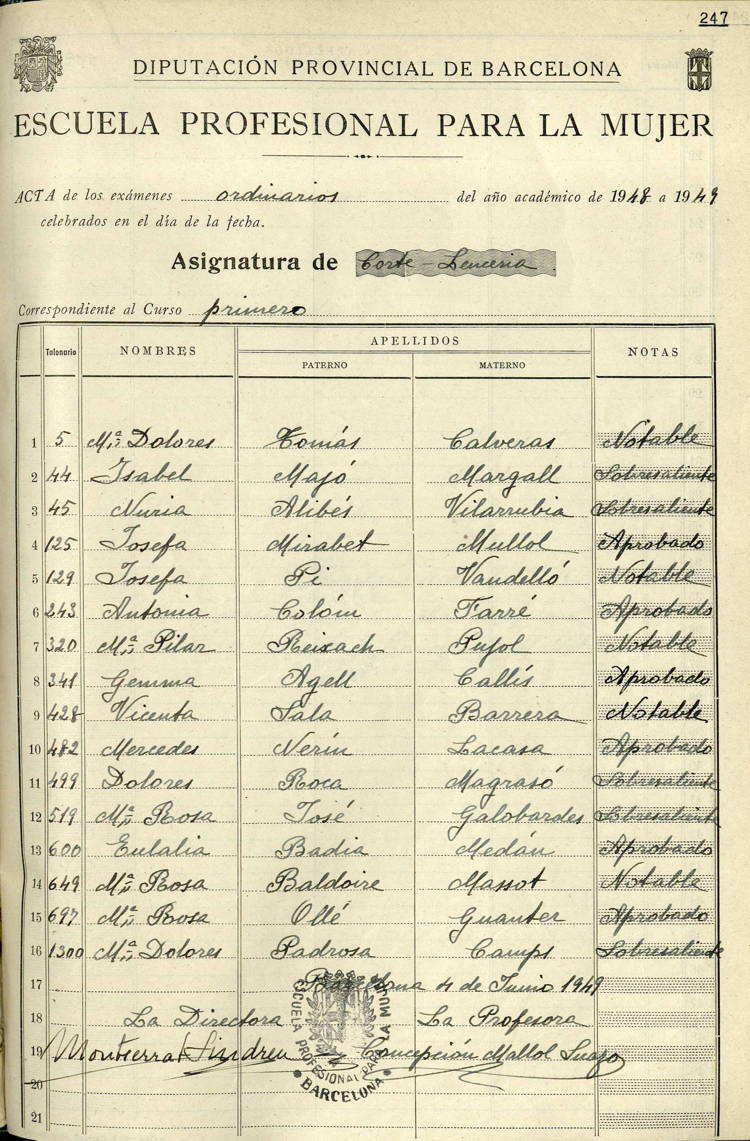 247
DIPUTACIÓN PROVINCIAL DE BARCELONA
ESCUELA PROFESIONAL PARA LA MUJER
ACTA de los exámenes ordinarios del año académico de 1948 a 1949
celebrados en el día de la fecha.
Asignatura de Corte - Lencería
Correspondiente al Curso primero
Talonario NOMBRES APELLIDOS NOTAS
PATERNO MATERNO
1 5 Mª Dolores Tomás Calveras Notable
2 44 Isabel Majó Margall Sobresaliente
3 45 Nuria Alibés Vilarrubia Sobresaliente
4 125 Josefa Mirabet Mullol Aprobado
5 129 Josefa Pi Vandelló Notable
6 243 Antonia Colóm Farré Aprobado
7 320 Mª Pilar Reixach Pujol Notable
8 341 Gemma Agell Callís Aprobado
9 428 Vicenta Sala Barrera Notable
10 482 Mercedes Nerín Lacasa Aprobado
11 499 Dolores Roca Magrasó Sobresaliente
12 519 Mª Rosa José Galobardes Sobresaliente
13 600 Eulalia Badia Medán Aprobado
14 649 Mª Rosa Baldoire Massot Notable
15 697 Mª Rosa Ollé Guanter Aprobado
16 1300 Mª Dolores Padrosa Camps Sobresaliente
17 Barcelona 4 de Junio 1949
18 La Directora La Profesora
19 Montserrat Lindreu Concepción Mallol Suazo
20
21
ESCUELA PROFESIONAL PARA LA MUJER
BARCELONA